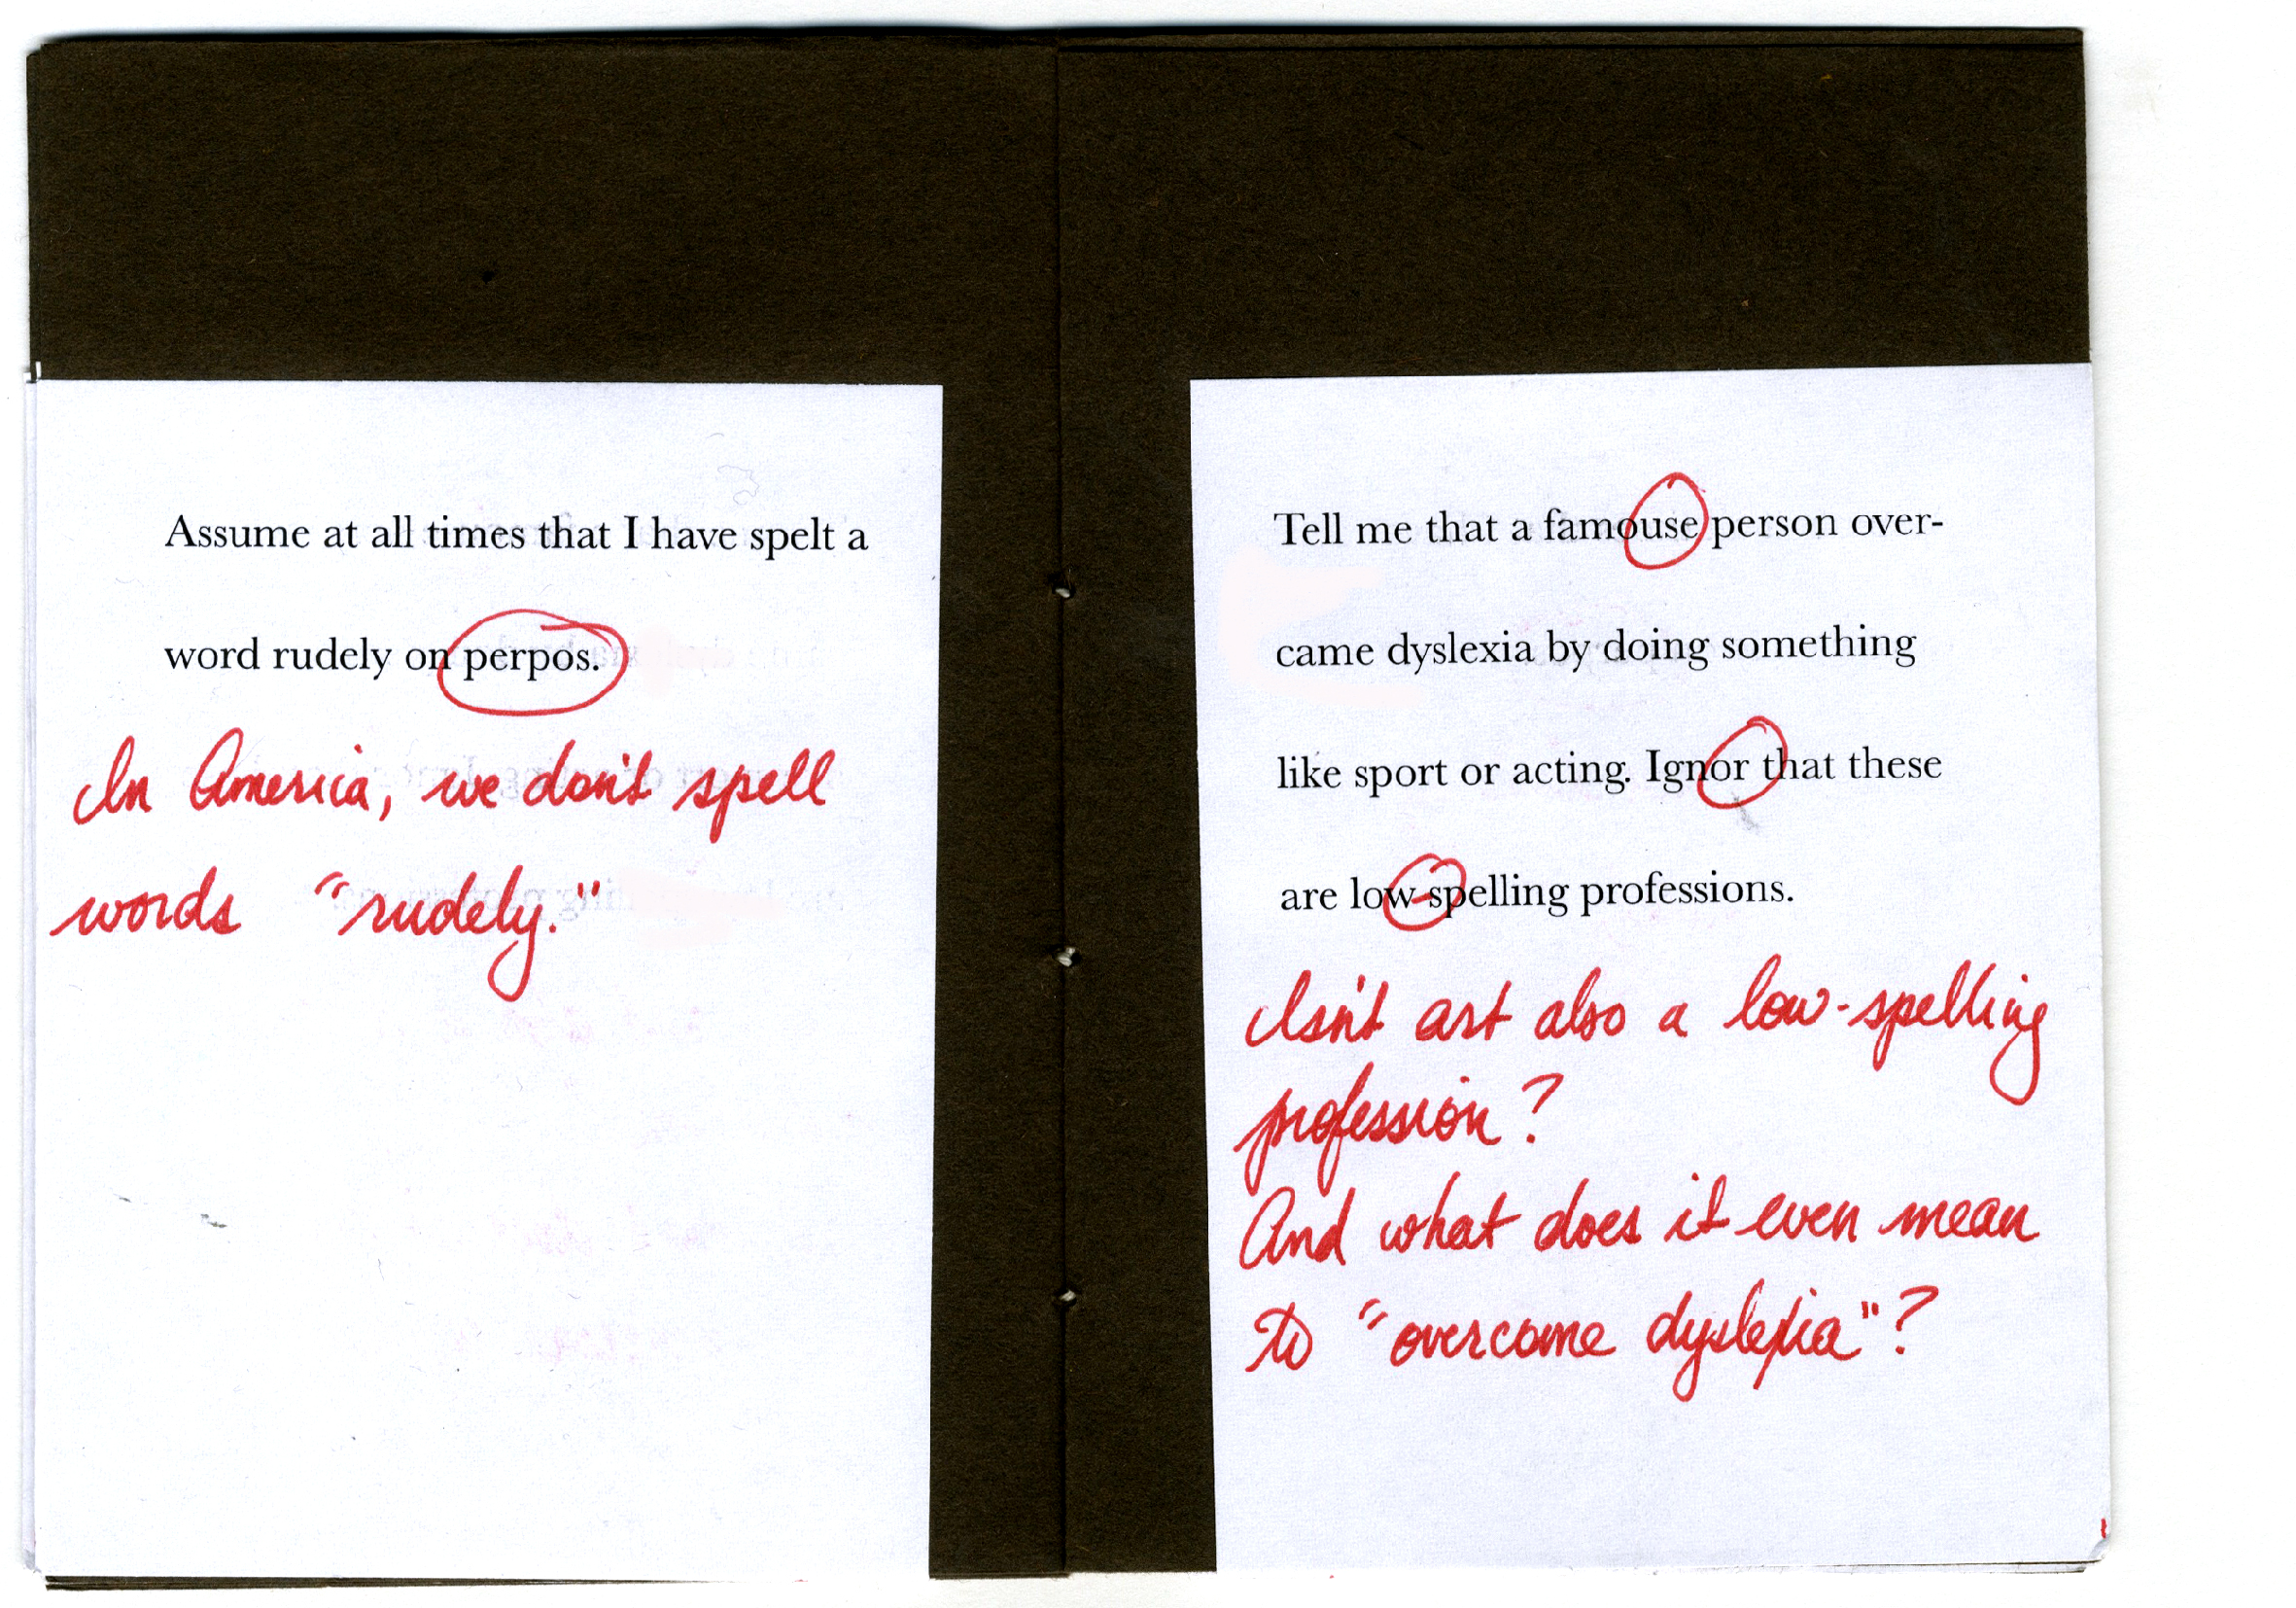 Assume at all times that I have spelt a
word rudely on perpos.
In America, we don't spell
words "rudely."
Tell me that a famouse person over-
came dyslexia by doing something
like sport or acting. Ignor that these
are low-spelling professions.
Isn't art also a low-spelling
profession?
And what does it even mean
to "overcome dyslexia"?